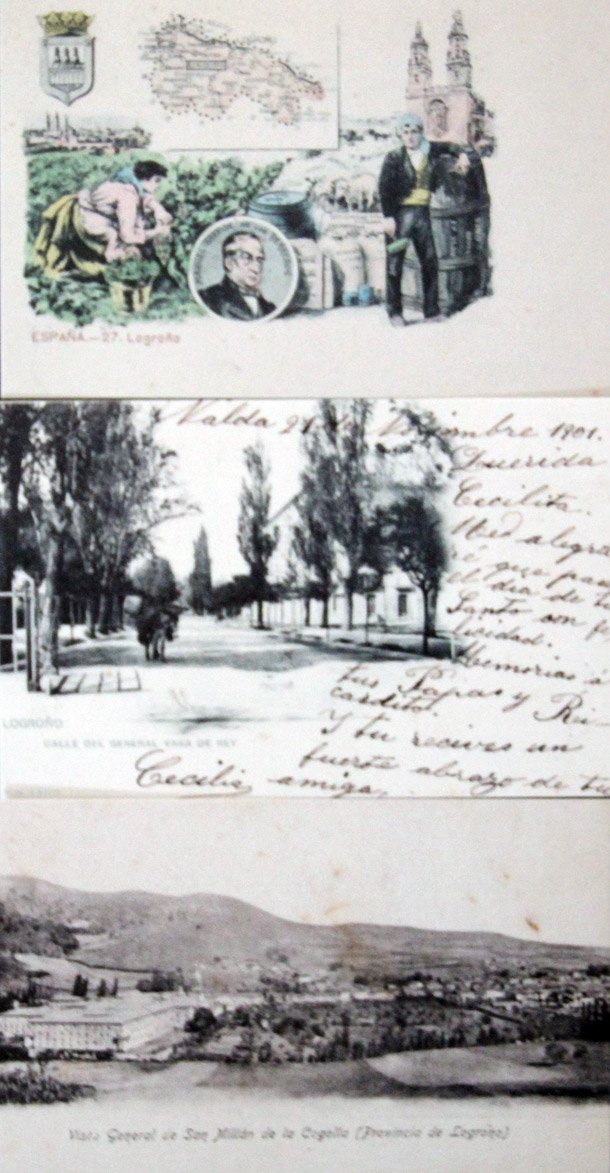 ESPAÑA.—27. Logroño
Nalda 21 de Noviembre 1901.
Querida
Cecilita.
alegra
é que pa
el dia de tu
Santo con fe
licidad.
Memorias a
tus Papas y Ri
cardito.
Y tu recives un
fuerte abrazo de tu
amiga.
Cecilia
LOGROÑO
CALLE DEL GENERAL VARA DE REY
Vista General de San Millán de la Cogolla (Provincia de Logroño)